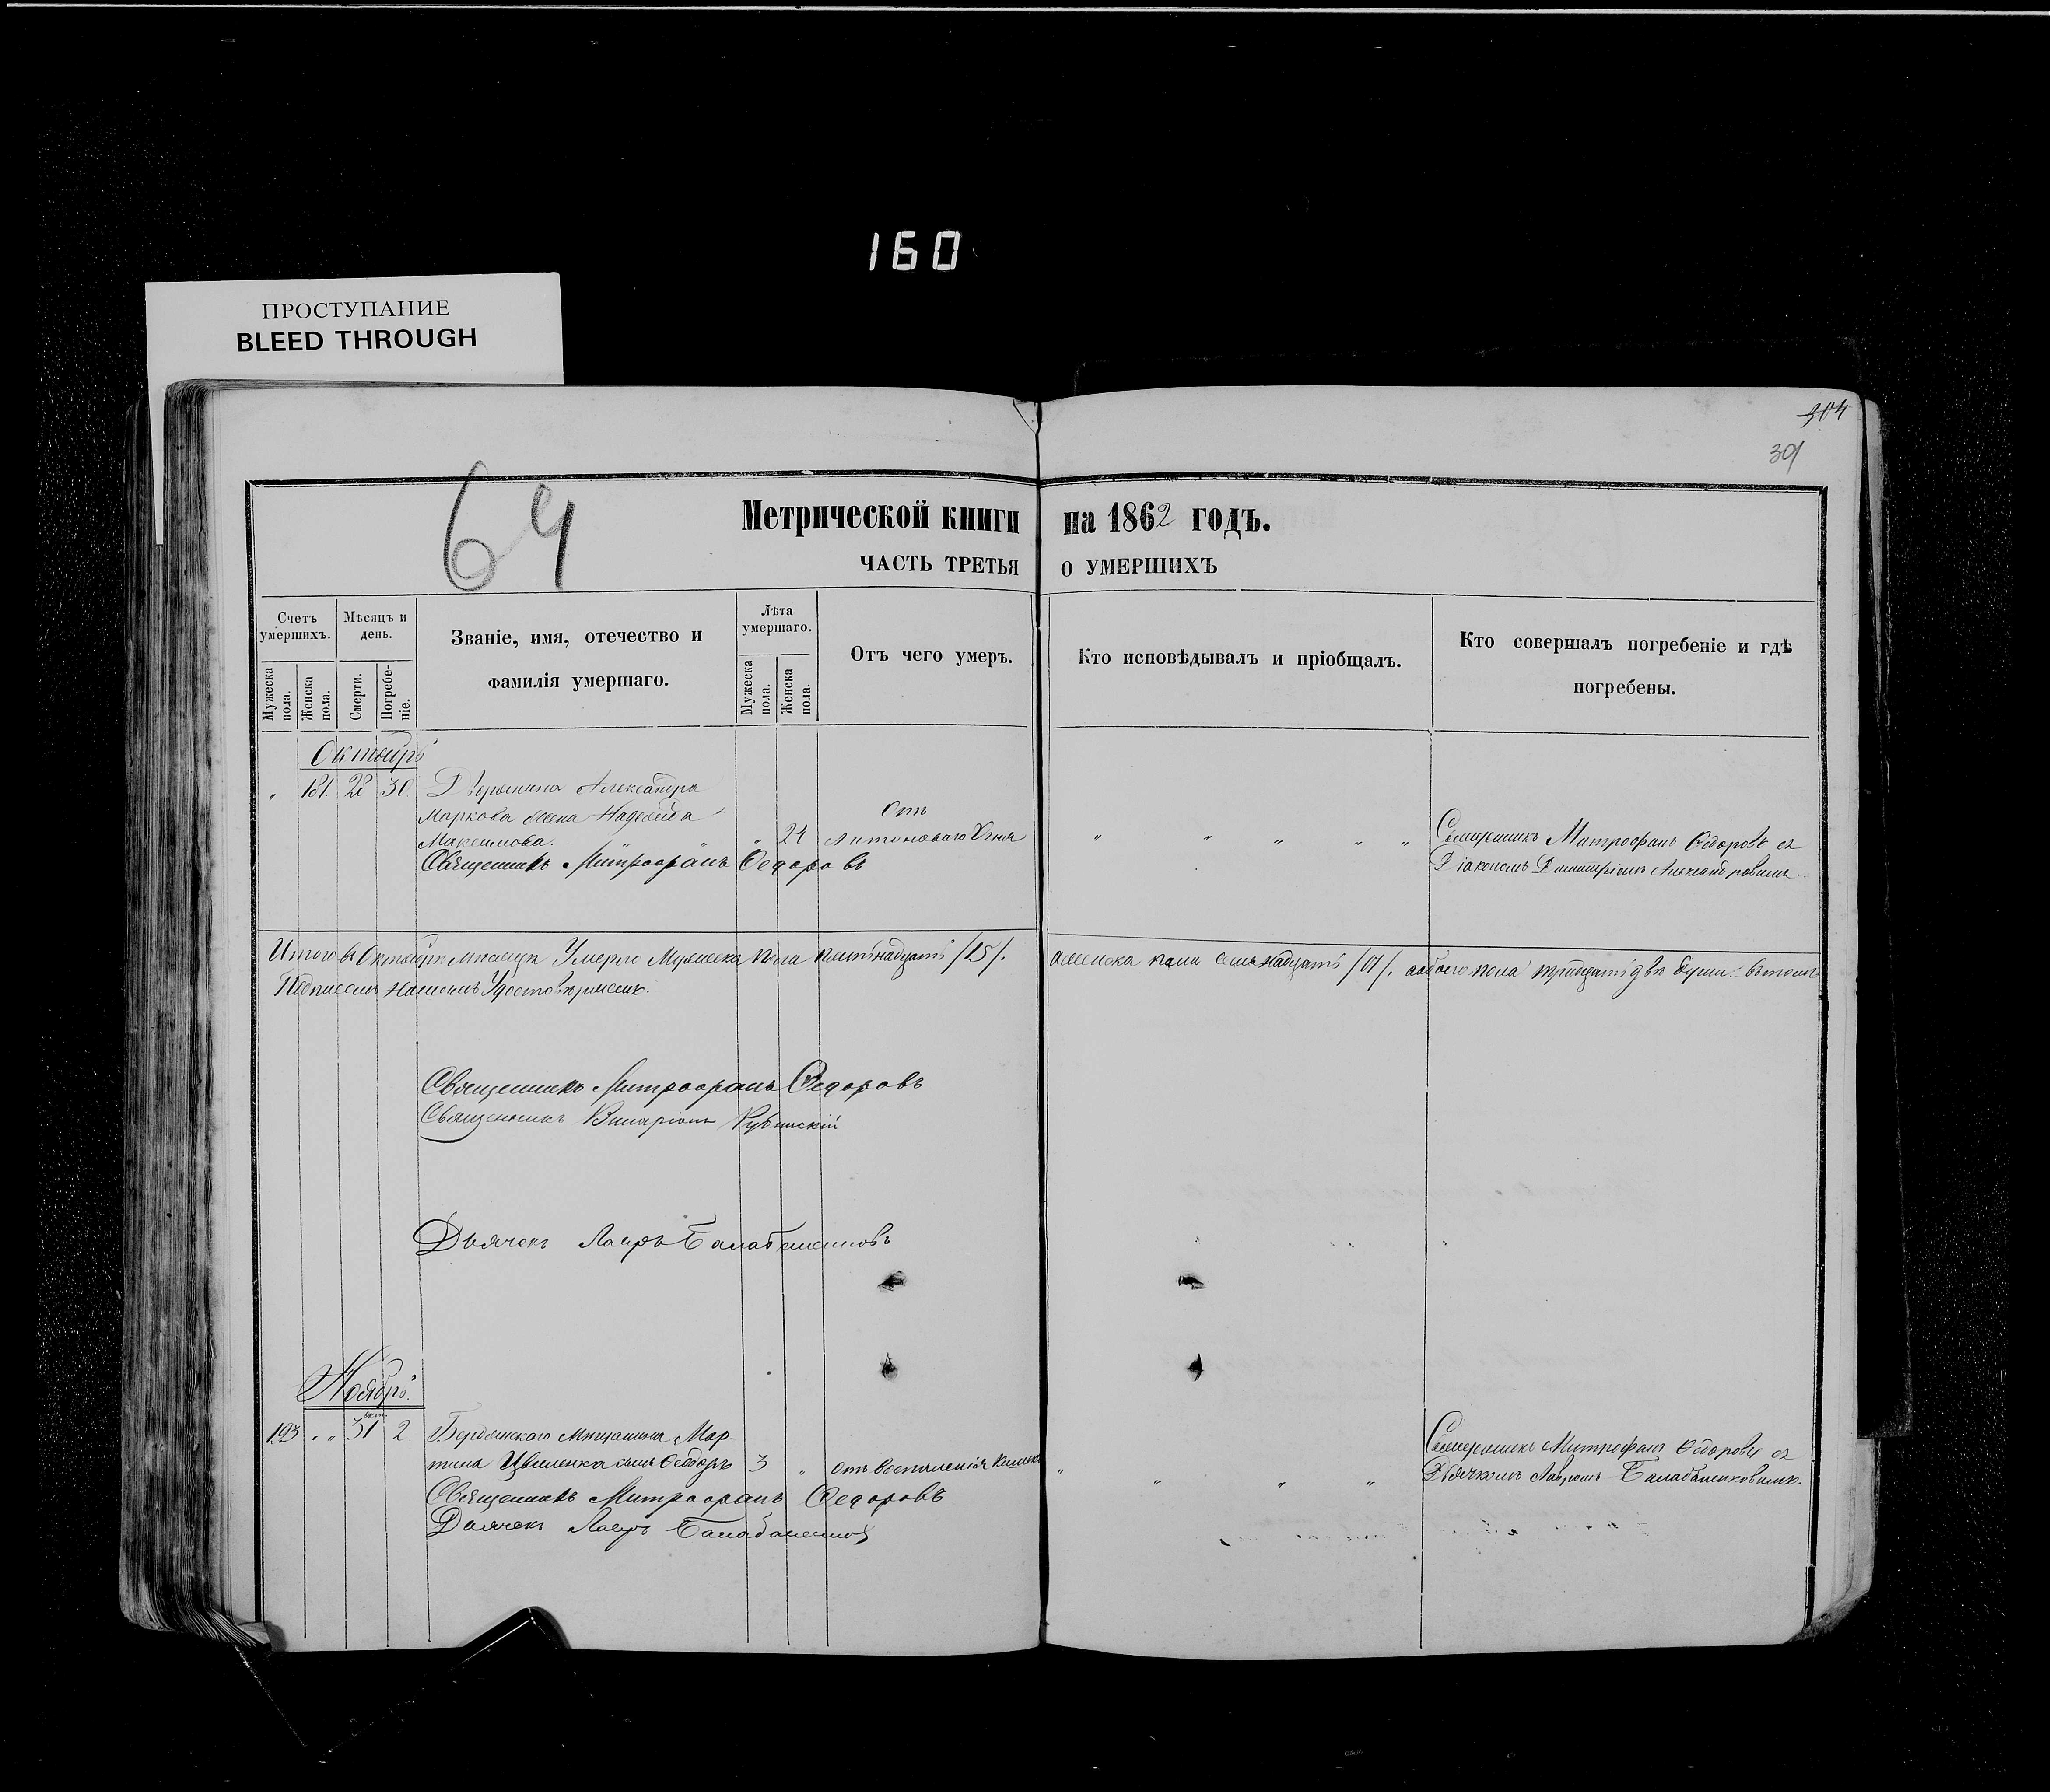 160
ПРОСТУПАНИЕ
BLEED THROUGH
304
301
64
Метрической книги на 1862 годъ.
ЧАСТЬ ТРЕТЬЯ О УМЕРШИХЪ
Счетъ умершихъ.
Мѣсяцъ и день.
Званіе, имя, отечество и фамилія умершаго.
Лѣта умершаго.
Отъ чего умеръ.
Кто исповѣдывалъ и пріобщалъ.
Кто совершалъ погребеніе и гдѣ погребены.
Мужеска пола.
Женска пола.
Смерти.
Погребеніе.
Мужеска пола.
Женска пола.
Октябрь
" 181. 28 30. Дворянина Александра
Маркова жена Надежда Отъ
Максимова. " 24 Антонова Огня " " " " " Священникъ Митрофанъ Ѳедоровъ съ
Священникъ Митрофанъ Ѳедоровъ
Діакономъ Димитріемъ Александровымъ.
Итого въ Октябрѣ мѣсяцѣ Умерло Мужеска пола пятнадцать /15/. женска пола семьнадцать /17/. обоего пола тридцать двѣ души. въ томъ
Подписомъ нашимъ Удостовѣряемъ.
Священникъ Митрофанъ Ѳедоровъ
Священникъ Иларіонъ
Дьячекъ Лавръ Балабаненковъ
Ноябрь.
193 " " 31 2 Бердянскаго Мѣщанина Мар-
тина Цвиленка сынъ Ѳеодоръ 3 " отъ воспаленія кишекъ " " " "
Священникъ Митрофанъ Ѳедоровъ съ
Дьячкомъ Лавромъ Балабаненковымъ.
Священникъ Митрофанъ Ѳедоровъ
Дьячекъ Лавръ Балабаненков